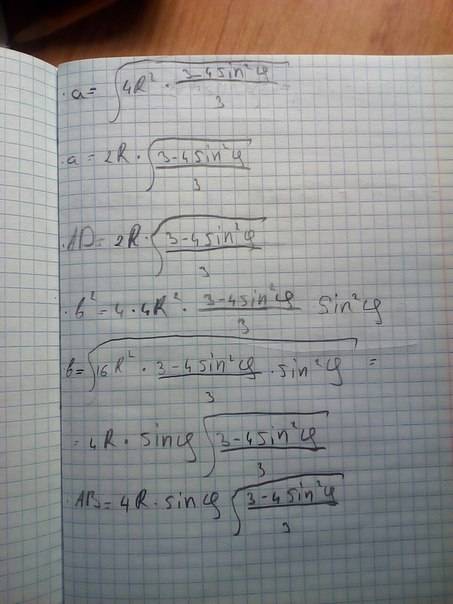 a = √(4R² · (3-4sin²φ)/3)
a = 2R · √((3-4sin²φ)/3)
AD = 2R · √((3-4sin²φ)/3)
b² = 4 · 4R² · (3-4sin²φ)/3 sin²φ
b = √(16R² · (3-4sin²φ)/3 · sin²φ) =
= 4R · sinφ √((3-4sin²φ)/3)
AB = 4R · sinφ √((3-4sin²φ)/3)